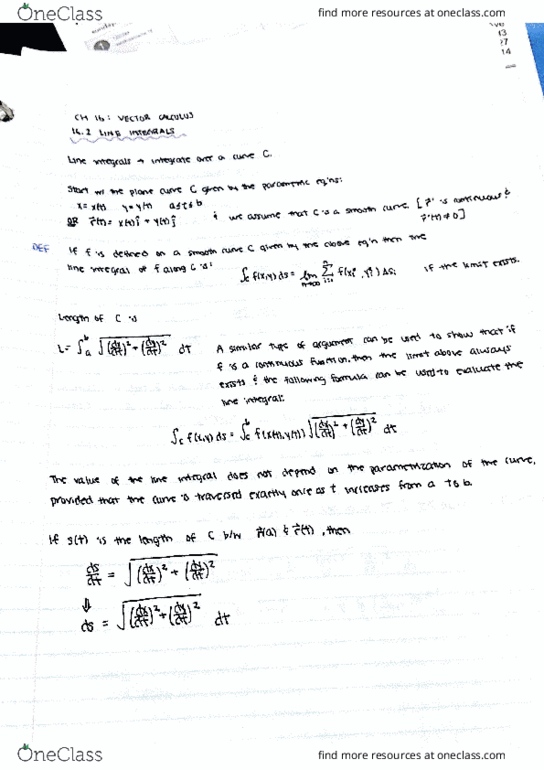 OneClass
find more resources at oneclass.com
13
27
14
CH 16: VECTOR CALCULUS
16.2 LINE INTEGRALS
Line integrals → integrate over a curve C.
Start w/ the plane curve C given by the parametric eq'ns:
x = x(t) y = y(t) a ≤ t ≤ b
OR r⃗(t) = x(t)î + y(t)ĵ & we assume that C is a smooth curve. [r⃗' is continuous & r⃗'(t) ≠ 0]
DEF If f is defined on a smooth curve C given by the above eq'n then the
line integral of f along C is: ∫_C f(x,y) ds = lim_{n→∞} Σ_{i=1}^{n} f(x_i*, y_i*) Δs_i if the limit exists.
Length of C is
L = ∫_a^b √((dx/dt)² + (dy/dt)²) dt
A similar type of argument can be used to show that if
f is a continuous function, then the limit above always
exists & the following formula can be used to evaluate the
line integral:
∫_C f(x,y) ds = ∫_C^b f(x(t), y(t)) √((dx/dt)² + (dy/dt)²) dt
The value of the line integral does not depend on the parametrization of the curve,
provided that the curve is traversed exactly once as t increases from a to b.
If s(t) is the length of C b/w r⃗(a) & r⃗(t), then
ds/dt = √((dx/dt)² + (dy/dt)²)
⇓
ds = √((dx/dt)² + (dy/dt)²) dt
OneClass
find more resources at oneclass.com